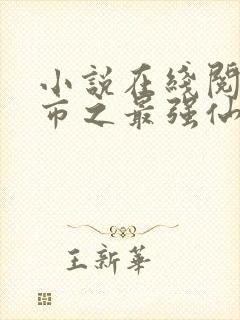 小說在綫閱
市之最强仙
王新華